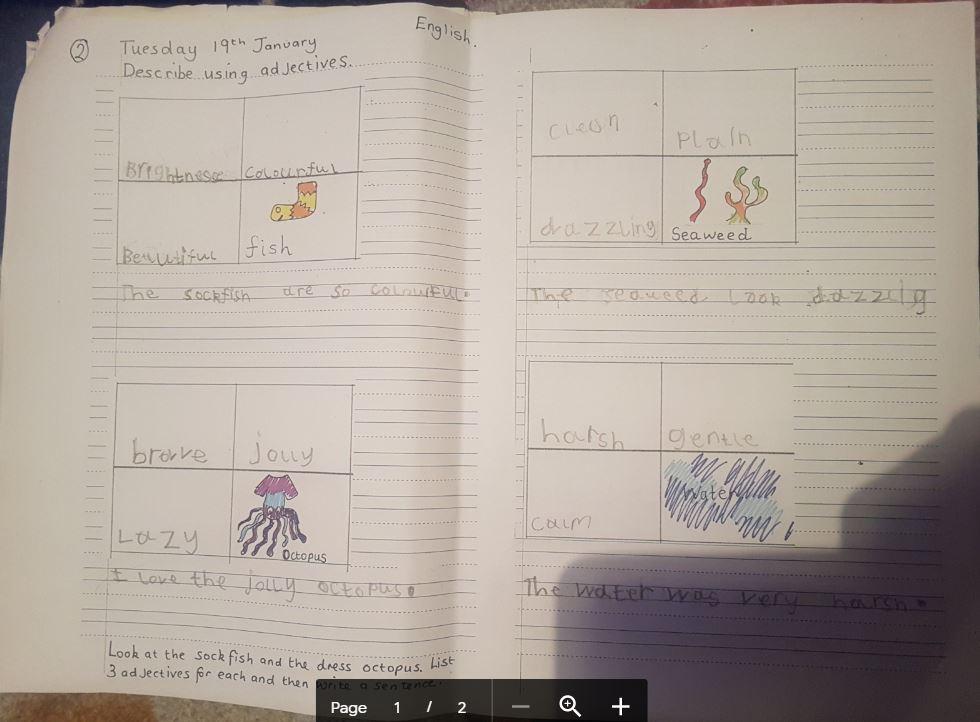 English.
② Tuesday 19th January
Describe using adjectives.
Brightness Colourful
Beautiful fish
The sockfish are so colourful.
brave jolly
Lazy Octopus
I love the jolly octopus.
Look at the sockfish and the dress octopus. List
3 adjectives for each and then write a sentence.
clean Plain
dazzling Seaweed
The seaweed look dazzlig
harsh gentle
calm Water
The water was very harsh.
Page 1 / 2